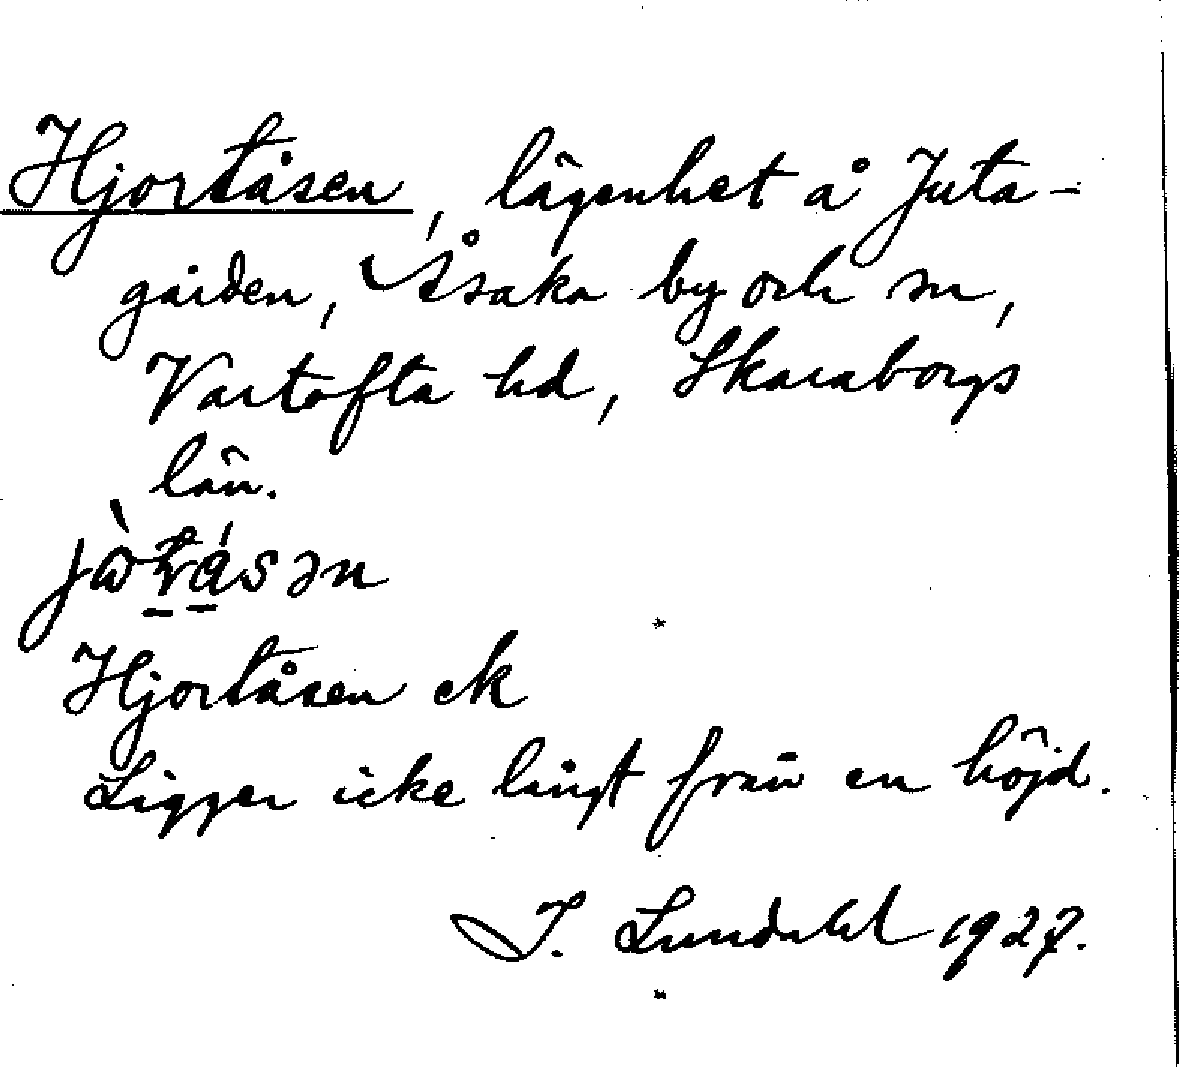 Hjortåsen, lägenhet å Juta-
gården, Åsaka by och sn,
Vartofta hd, Skaraborgs
län.
Hjortåsen ek
Ligger icke långt från en höjd.
I. Lundahl 1927.